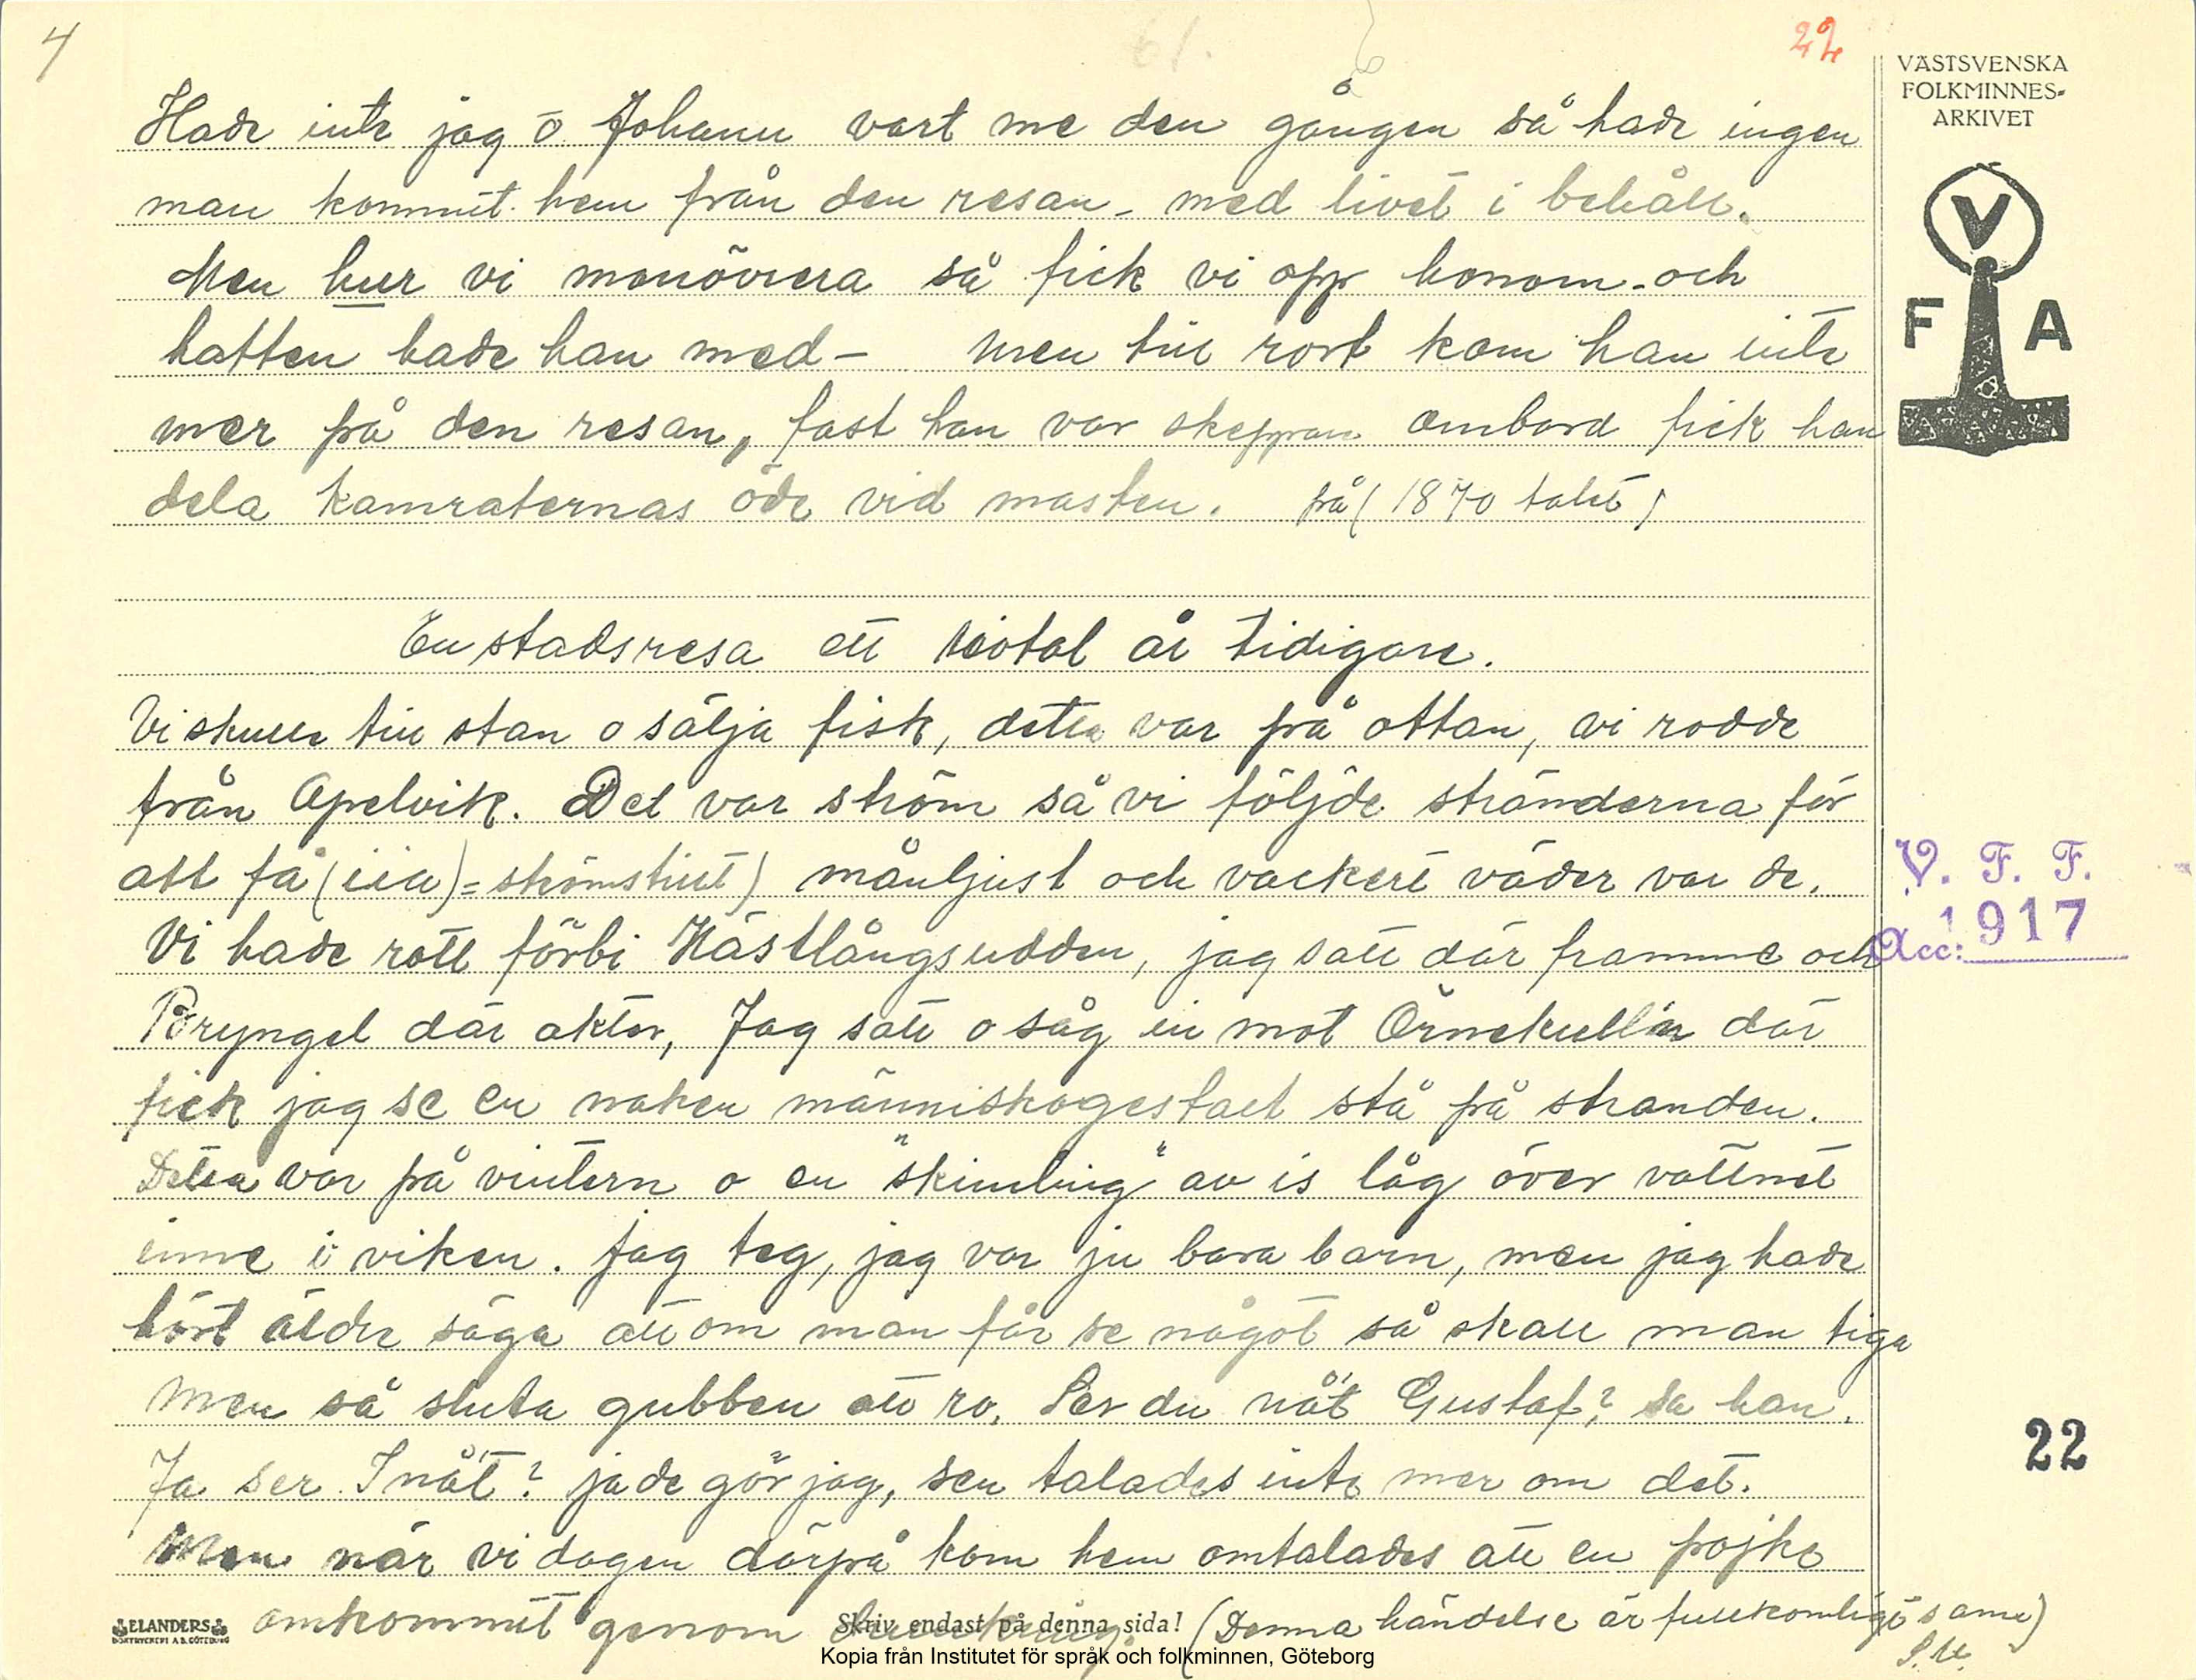 4
61.
22
VÄSTSVENSKA
FOLKMINNES-
ARKIVET
V
F A
Hade inte jag o Johann vart me den gången så hade ingen
man kommit hem från den resan - med livet i behåll.
Men hur vi manövrera så fick vi opp honom - och
hatten hade han med - men till rort kom han inte
mer på den resan, fast han var skepparn ombord fick han
dela kamraternas öde vid masten. på (1870 talet)
En stadsresa ett tiotal år tidigare.
Vi skulle till stan o sälja fisk, detta var på ottan, vi rodde
från Apelvik. Det var ström så vi följde stränderna för
att få ( = strömstilt) månljust och vackert väder var de.
V. F. F.
Acc: 1917
Vi hade rott förbi Hästlångsudden, jag satt där framme och
Bryngel där akter, Jag satt o såg in mot Örnekulln där
fick jag se en naken människogestalt stå på stranden.
Detta var på vintern o en "skimling" av is låg över vattnet
inne i viken. Jag teg, jag var ju bara barn, men jag hade
hört äldre säga att om man får se något så skall man tiga
men så sluta gubben att ro. Ser du nåt Gustaf? sa han.
Ja ser I nåt? ja de gör jag, sen talades inte mer om det.
22
Men när vi dagen därpå kom hem omtalades att en pojke
omkommit genom drunkning. (Denna händelse är fullkomligt sann)
S. U.
ELANDERS
BOKTRYCKERI A.B. GÖTEBORG
Skriv endast på denna sida!
Kopia från Institutet för språk och folkminnen, Göteborg